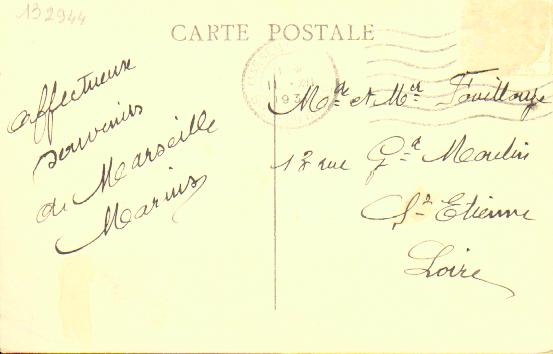 132944
CARTE POSTALE
193
affectueux
souvenirs
de Marseille
Marius
Mde et Mr Fouilloupe
12 rue Gd Moulin
St Etienne
Loire